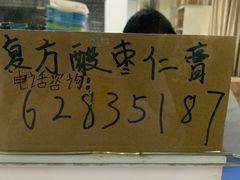 复方酸枣仁膏
电话咨询:
62835187